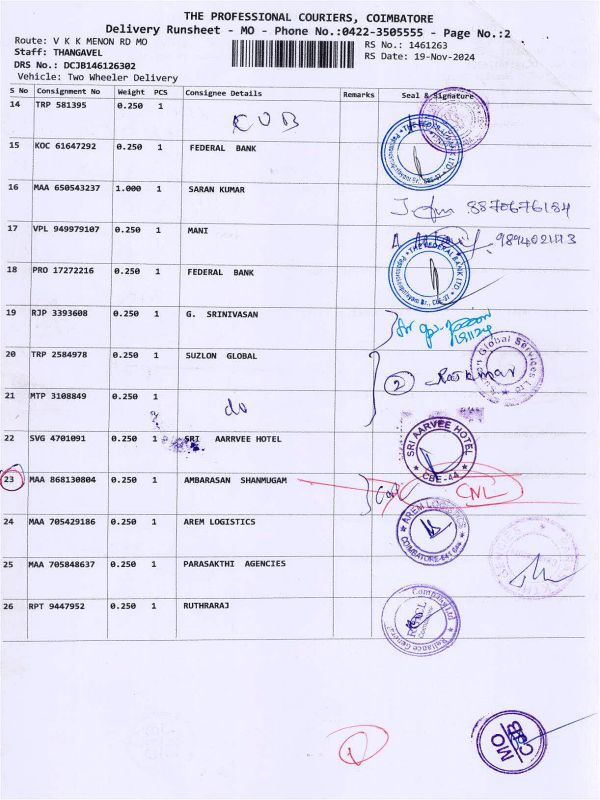 THE PROFESSIONAL COURIERS, COIMBATORE
Delivery Runsheet - MO - Phone No.:0422-3505555 - Page No.:2
Route: V K K MENON RD MO
Staff: THANGAVEL
RS No.: 1461263
DRS No.: DCJB146126302
RS Date: 19-Nov-2024
Vehicle: Two Wheeler Delivery
S No Consignment No Weight PCS Consignee Details Remarks Seal & Signature
14 TRP 581395 0.250 1 CUB
15 KOC 61647292 0.250 1 FEDERAL BANK
THE FEDERAL BANK LTD.
16 MAA 650543237 1.000 1 SARAN KUMAR
8870676184
17 VPL 949979107 0.250 1 MANI
9894021113
18 PRO 17272216 0.250 1 FEDERAL BANK
THE FEDERAL BANK LTD.
19 RJP 3393608 0.250 1 G. SRINIVASAN
20 TRP 2584978 0.250 1 SUZLON GLOBAL
Suzlon Global Services Ltd
2
21 MTP 3108849 0.250 1 do
22 SVG 4701091 0.250 1 SRI AARRVEE HOTEL
SRI AARVEE HOTEL
CBE-44
23 MAA 868130804 0.250 1 AMBARASAN SHANMUGAM
CNL
24 MAA 705429186 0.250 1 AREM LOGISTICS
AREM LOGISTICS
25 MAA 705848637 0.250 1 PARASAKTHI AGENCIES
26 RPT 9447952 0.250 1 RUTHRARAJ
Reliance General
MO
CJB